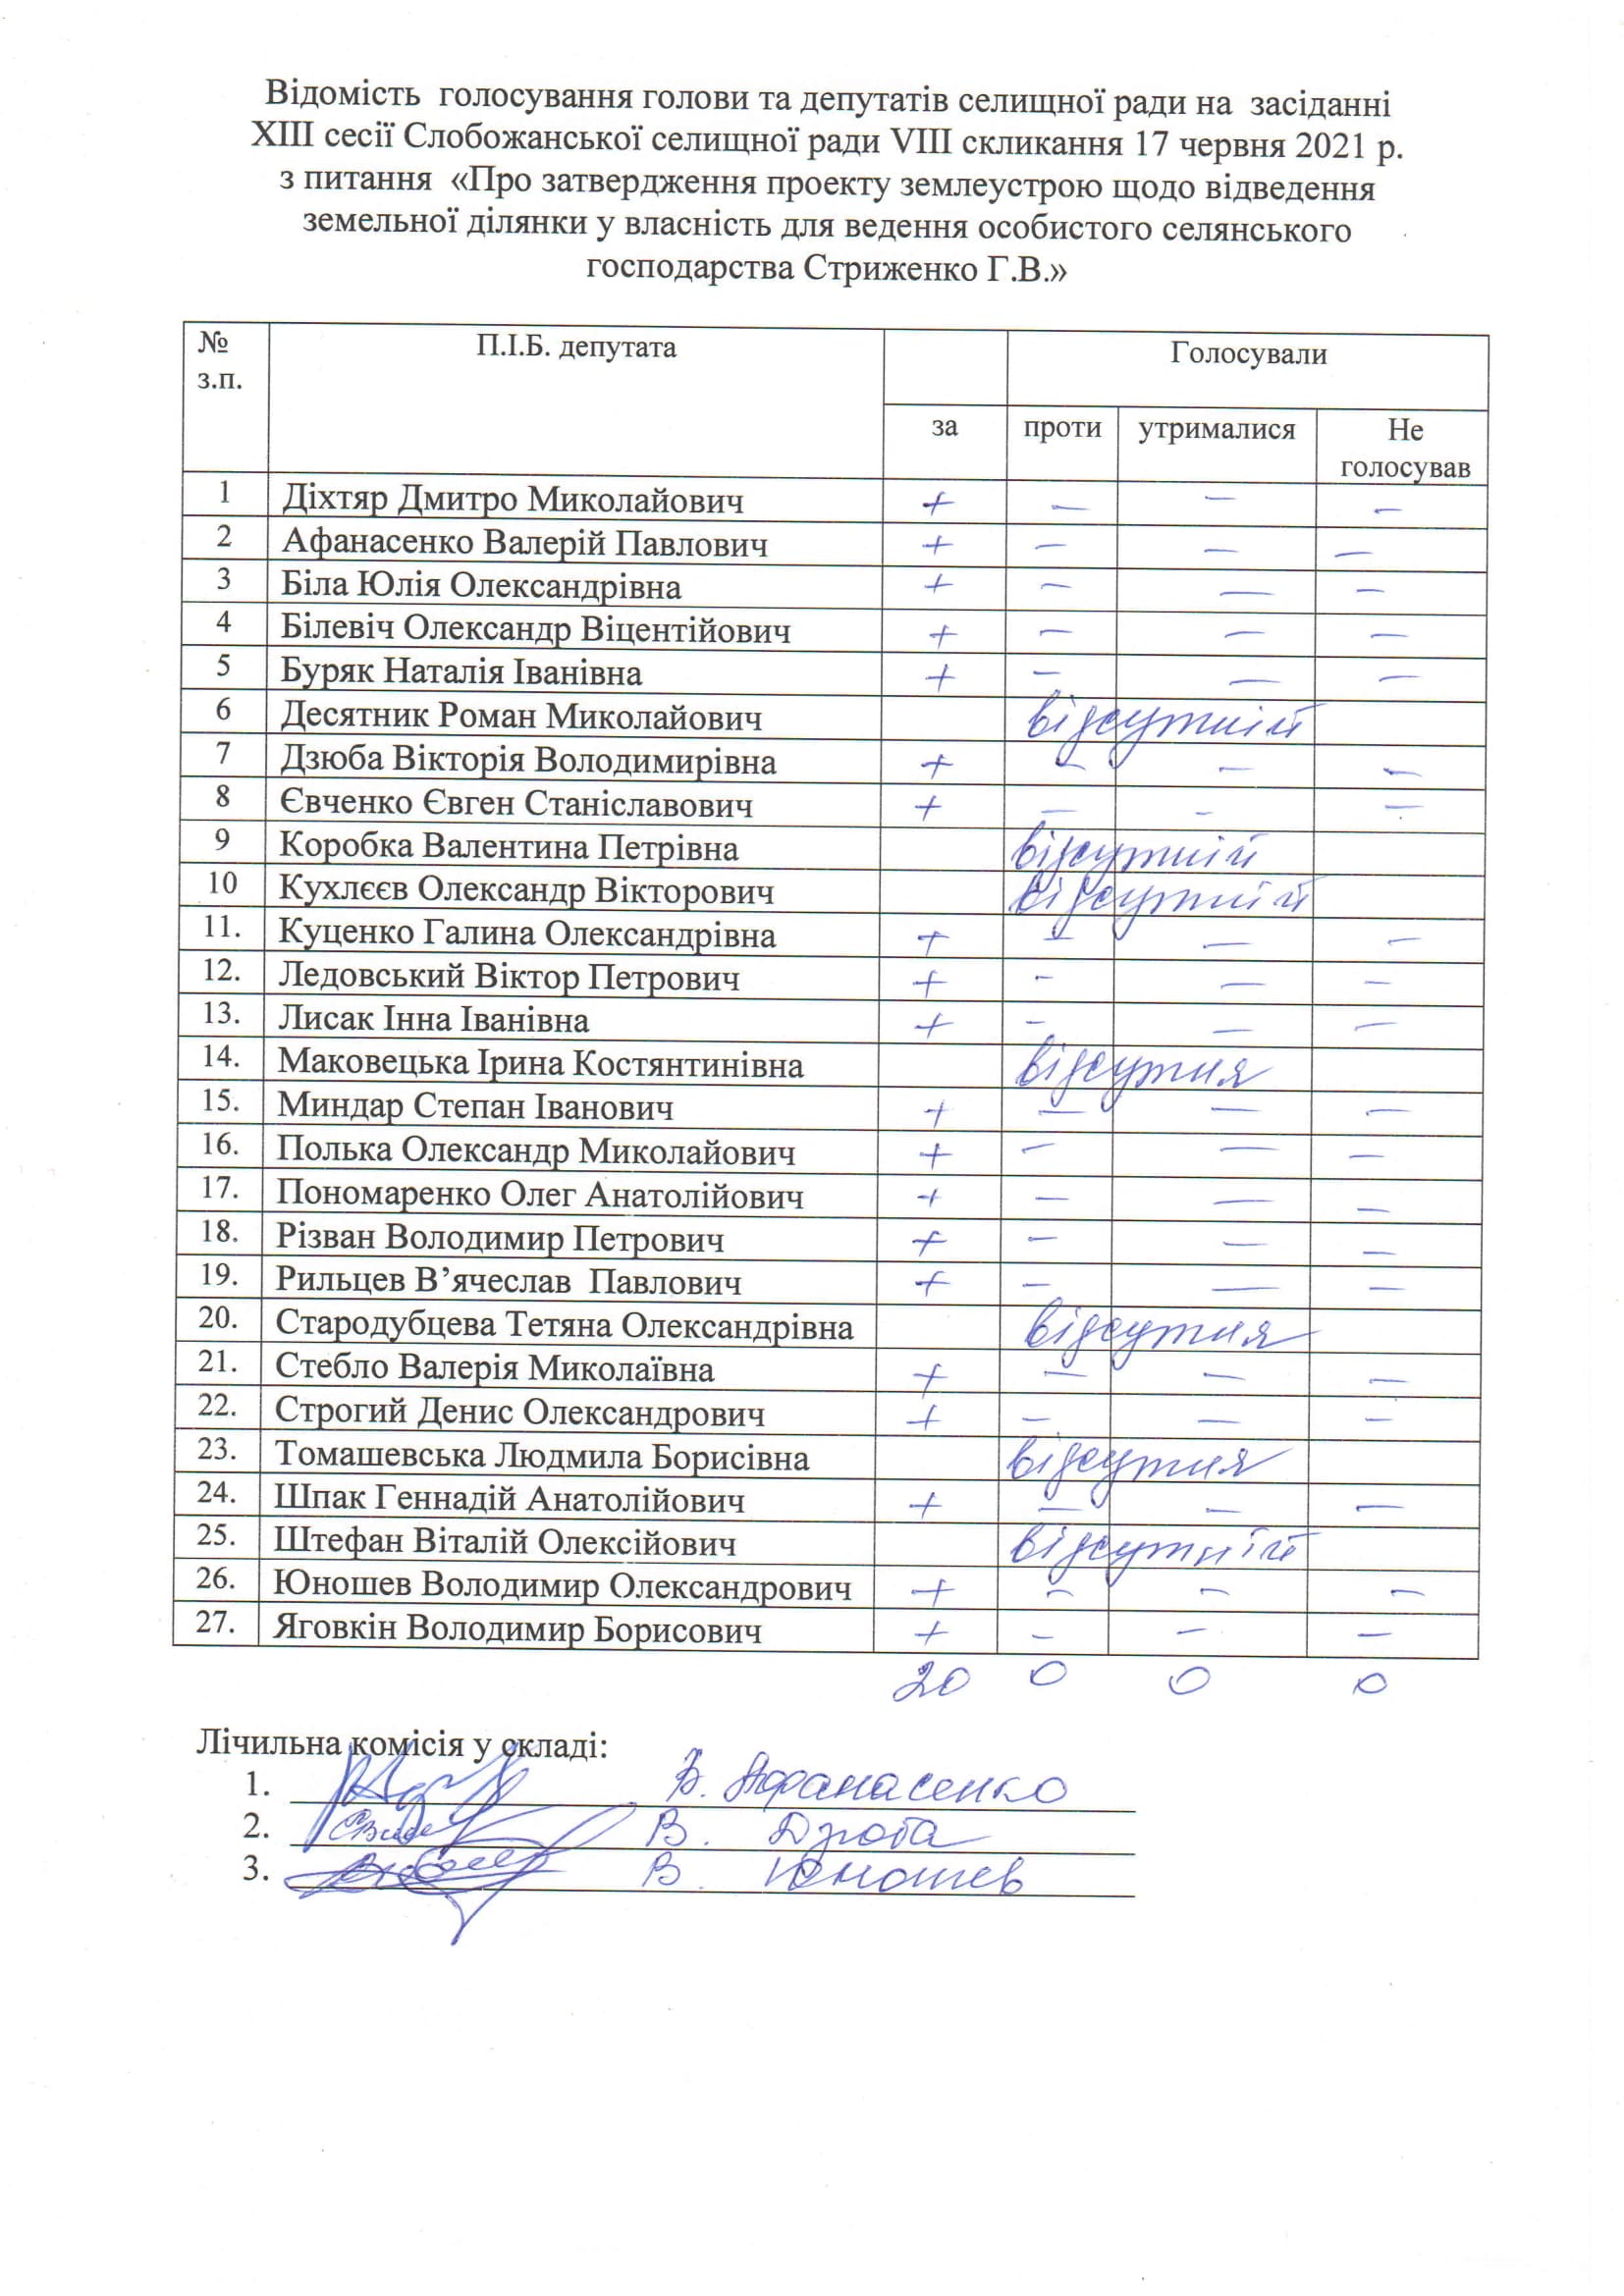 Відомість голосування голови та депутатів селищної ради на засіданні
XIII сесії Слобожанської селищної ради VIII скликання 17 червня 2021 р.
з питання «Про затвердження проекту землеустрою щодо відведення
земельної ділянки у власність для ведення особистого селянського
господарства Стриженко Г.В.»
№ з.п. П.І.Б. депутата Голосували
за проти утрималися Не голосував
1 Діхтяр Дмитро Миколайович + — — —
2 Афанасенко Валерій Павлович + — — —
3 Біла Юлія Олександрівна + — — —
4 Білевіч Олександр Віцентійович + — — —
5 Буряк Наталія Іванівна + — — —
6 Десятник Роман Миколайович відсутній
7 Дзюба Вікторія Володимирівна + — — —
8 Євченко Євген Станіславович + — — —
9 Коробка Валентина Петрівна відсутній
10 Кухлєєв Олександр Вікторович відсутній
11. Куценко Галина Олександрівна + — — —
12. Ледовський Віктор Петрович + — — —
13. Лисак Інна Іванівна + — — —
14. Маковецька Ірина Костянтинівна відсутня
15. Миндар Степан Іванович + — — —
16. Полька Олександр Миколайович + — — —
17. Пономаренко Олег Анатолійович + — — —
18. Різван Володимир Петрович + — — —
19. Рильцев В’ячеслав Павлович + — — —
20. Стародубцева Тетяна Олександрівна відсутня
21. Стебло Валерія Миколаївна + — — —
22. Строгий Денис Олександрович + — — —
23. Томашевська Людмила Борисівна відсутня
24. Шпак Геннадій Анатолійович + — — —
25. Штефан Віталій Олексійович відсутній
26. Юношев Володимир Олександрович + — — —
27. Яговкін Володимир Борисович + — — —
20 0 0 0
Лічильна комісія у складі:
1. В. Афанасенко
2. В. Дзюба
3. В. Юношев